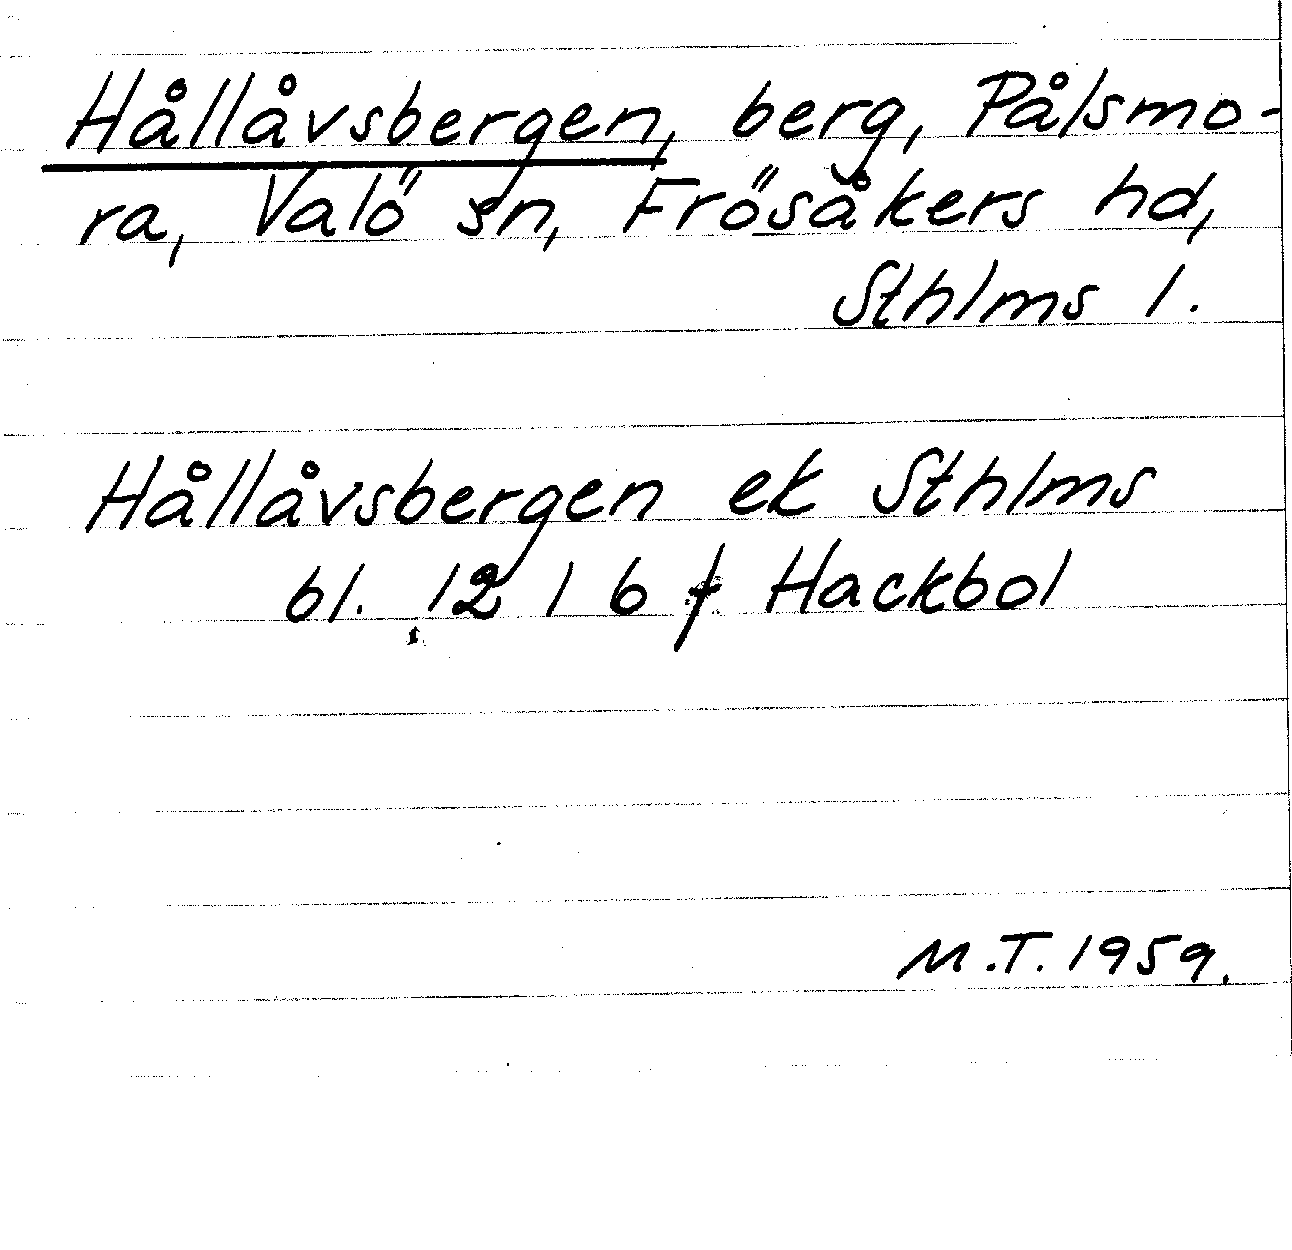 Hållåvsbergen, berg, Pålsmo-
ra, Valö sn, Frösåkers hd,
Sthlms l.
Hållåvsbergen ek Sthlms
bl. 12 1 b f Hackbol
M.T. 1959.